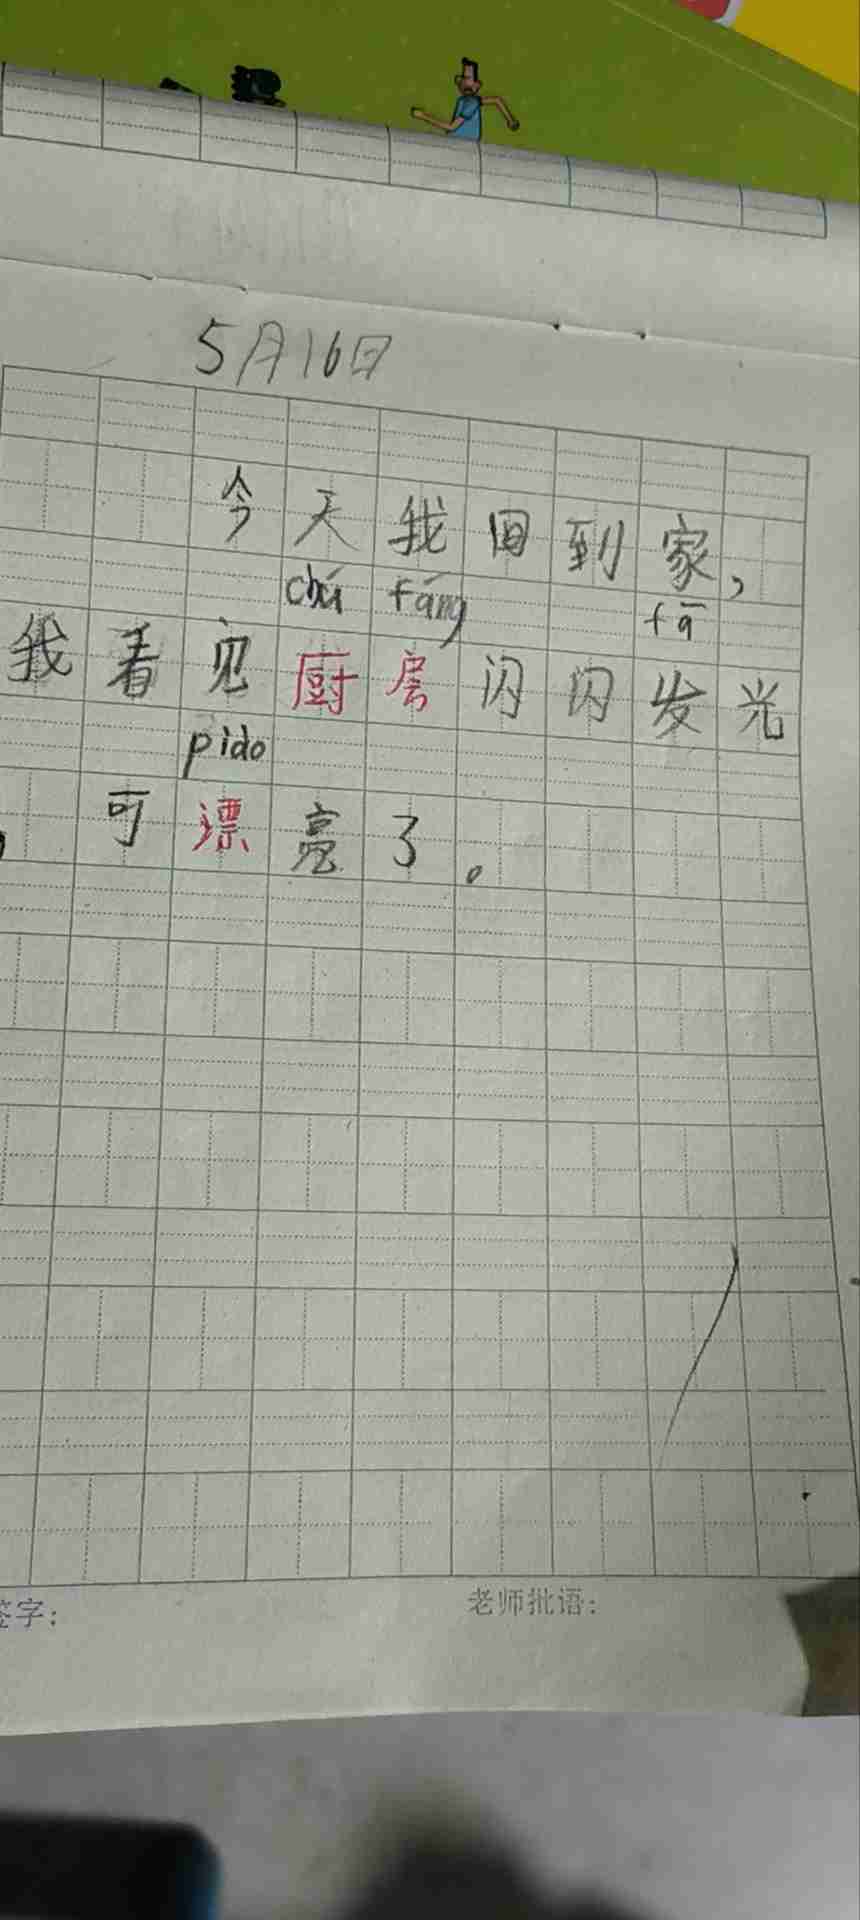 5月16日
今天我回到家,
chú fáng fā
我看见厨房闪闪发光
pido
,可漂亮了。
签字:
老师批语: